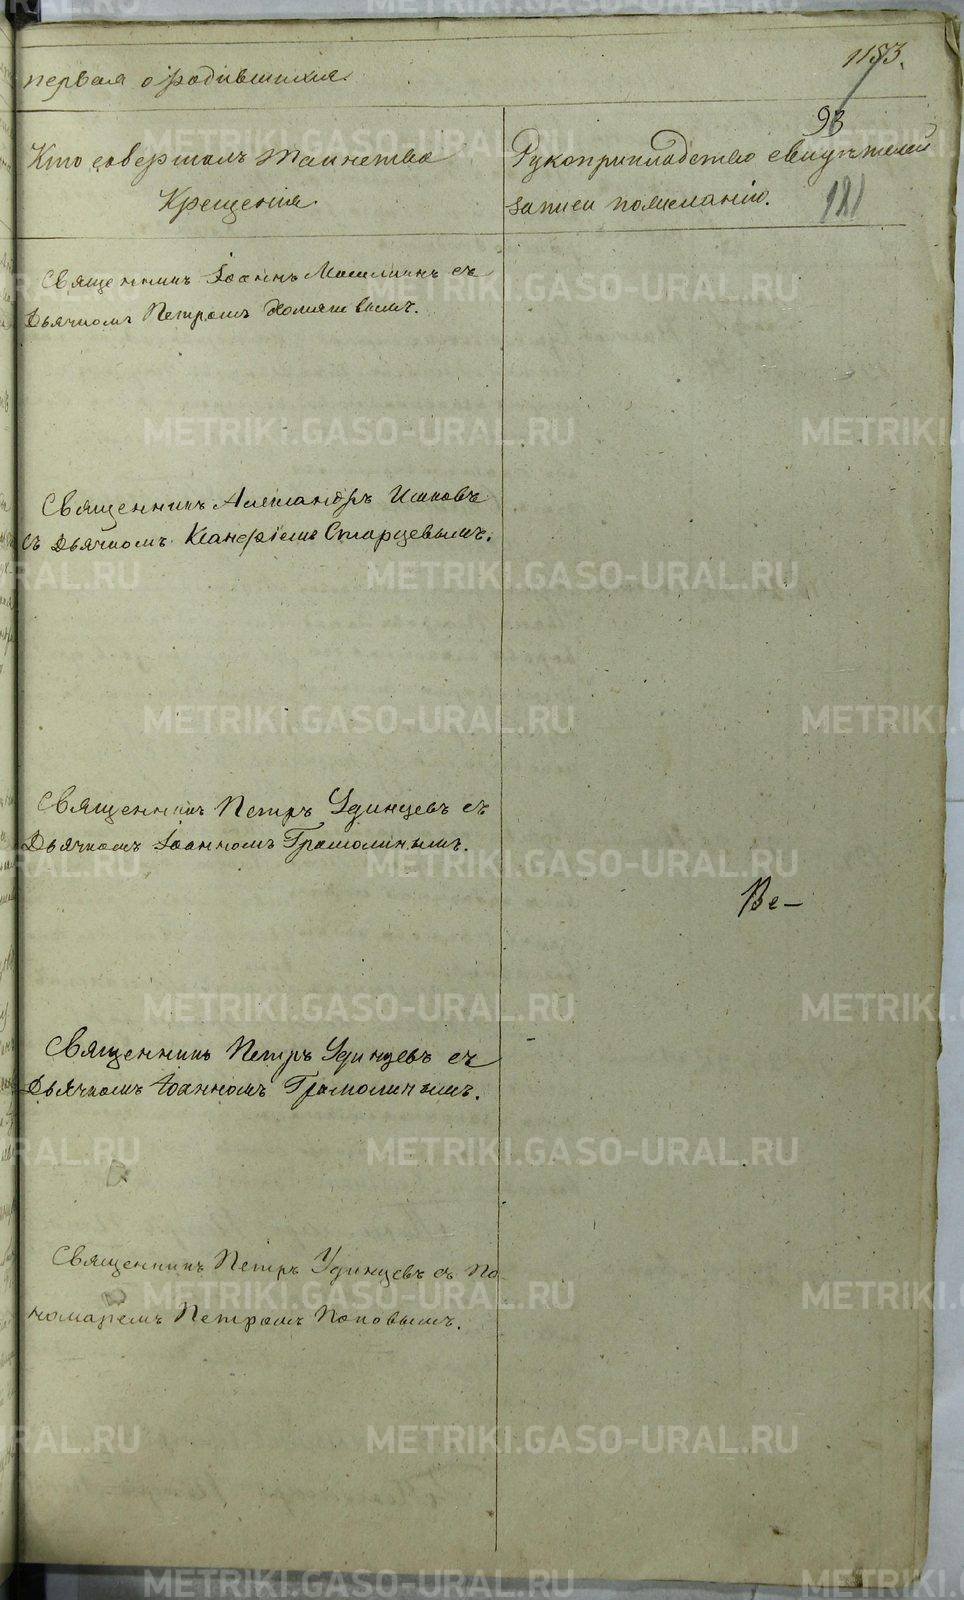 первая о родившихся.
1153.
93
181
Кто совершалъ таинство
Крещенія.
Рукоприкладство свидѣтелей
записи по желанію.
Священникъ Іоаннъ съ
Дьячкомъ Петромъ Хомяковымъ.
Священникъ Александръ Ишковъ
съ Дьячкомъ Ксанфіемъ Старцевымъ.
Священникъ Петръ Удинцевъ съ
Дьячкомъ Іоанномъ Грамолинымъ.
Ве-
Священникъ Петръ Удинцевъ съ
Дьячкомъ Іоанномъ Грамолинымъ.
Священникъ Петръ Удинцевъ съ По-
номаремъ Петромъ Поповымъ.
METRIKI.GASO-URAL.RU